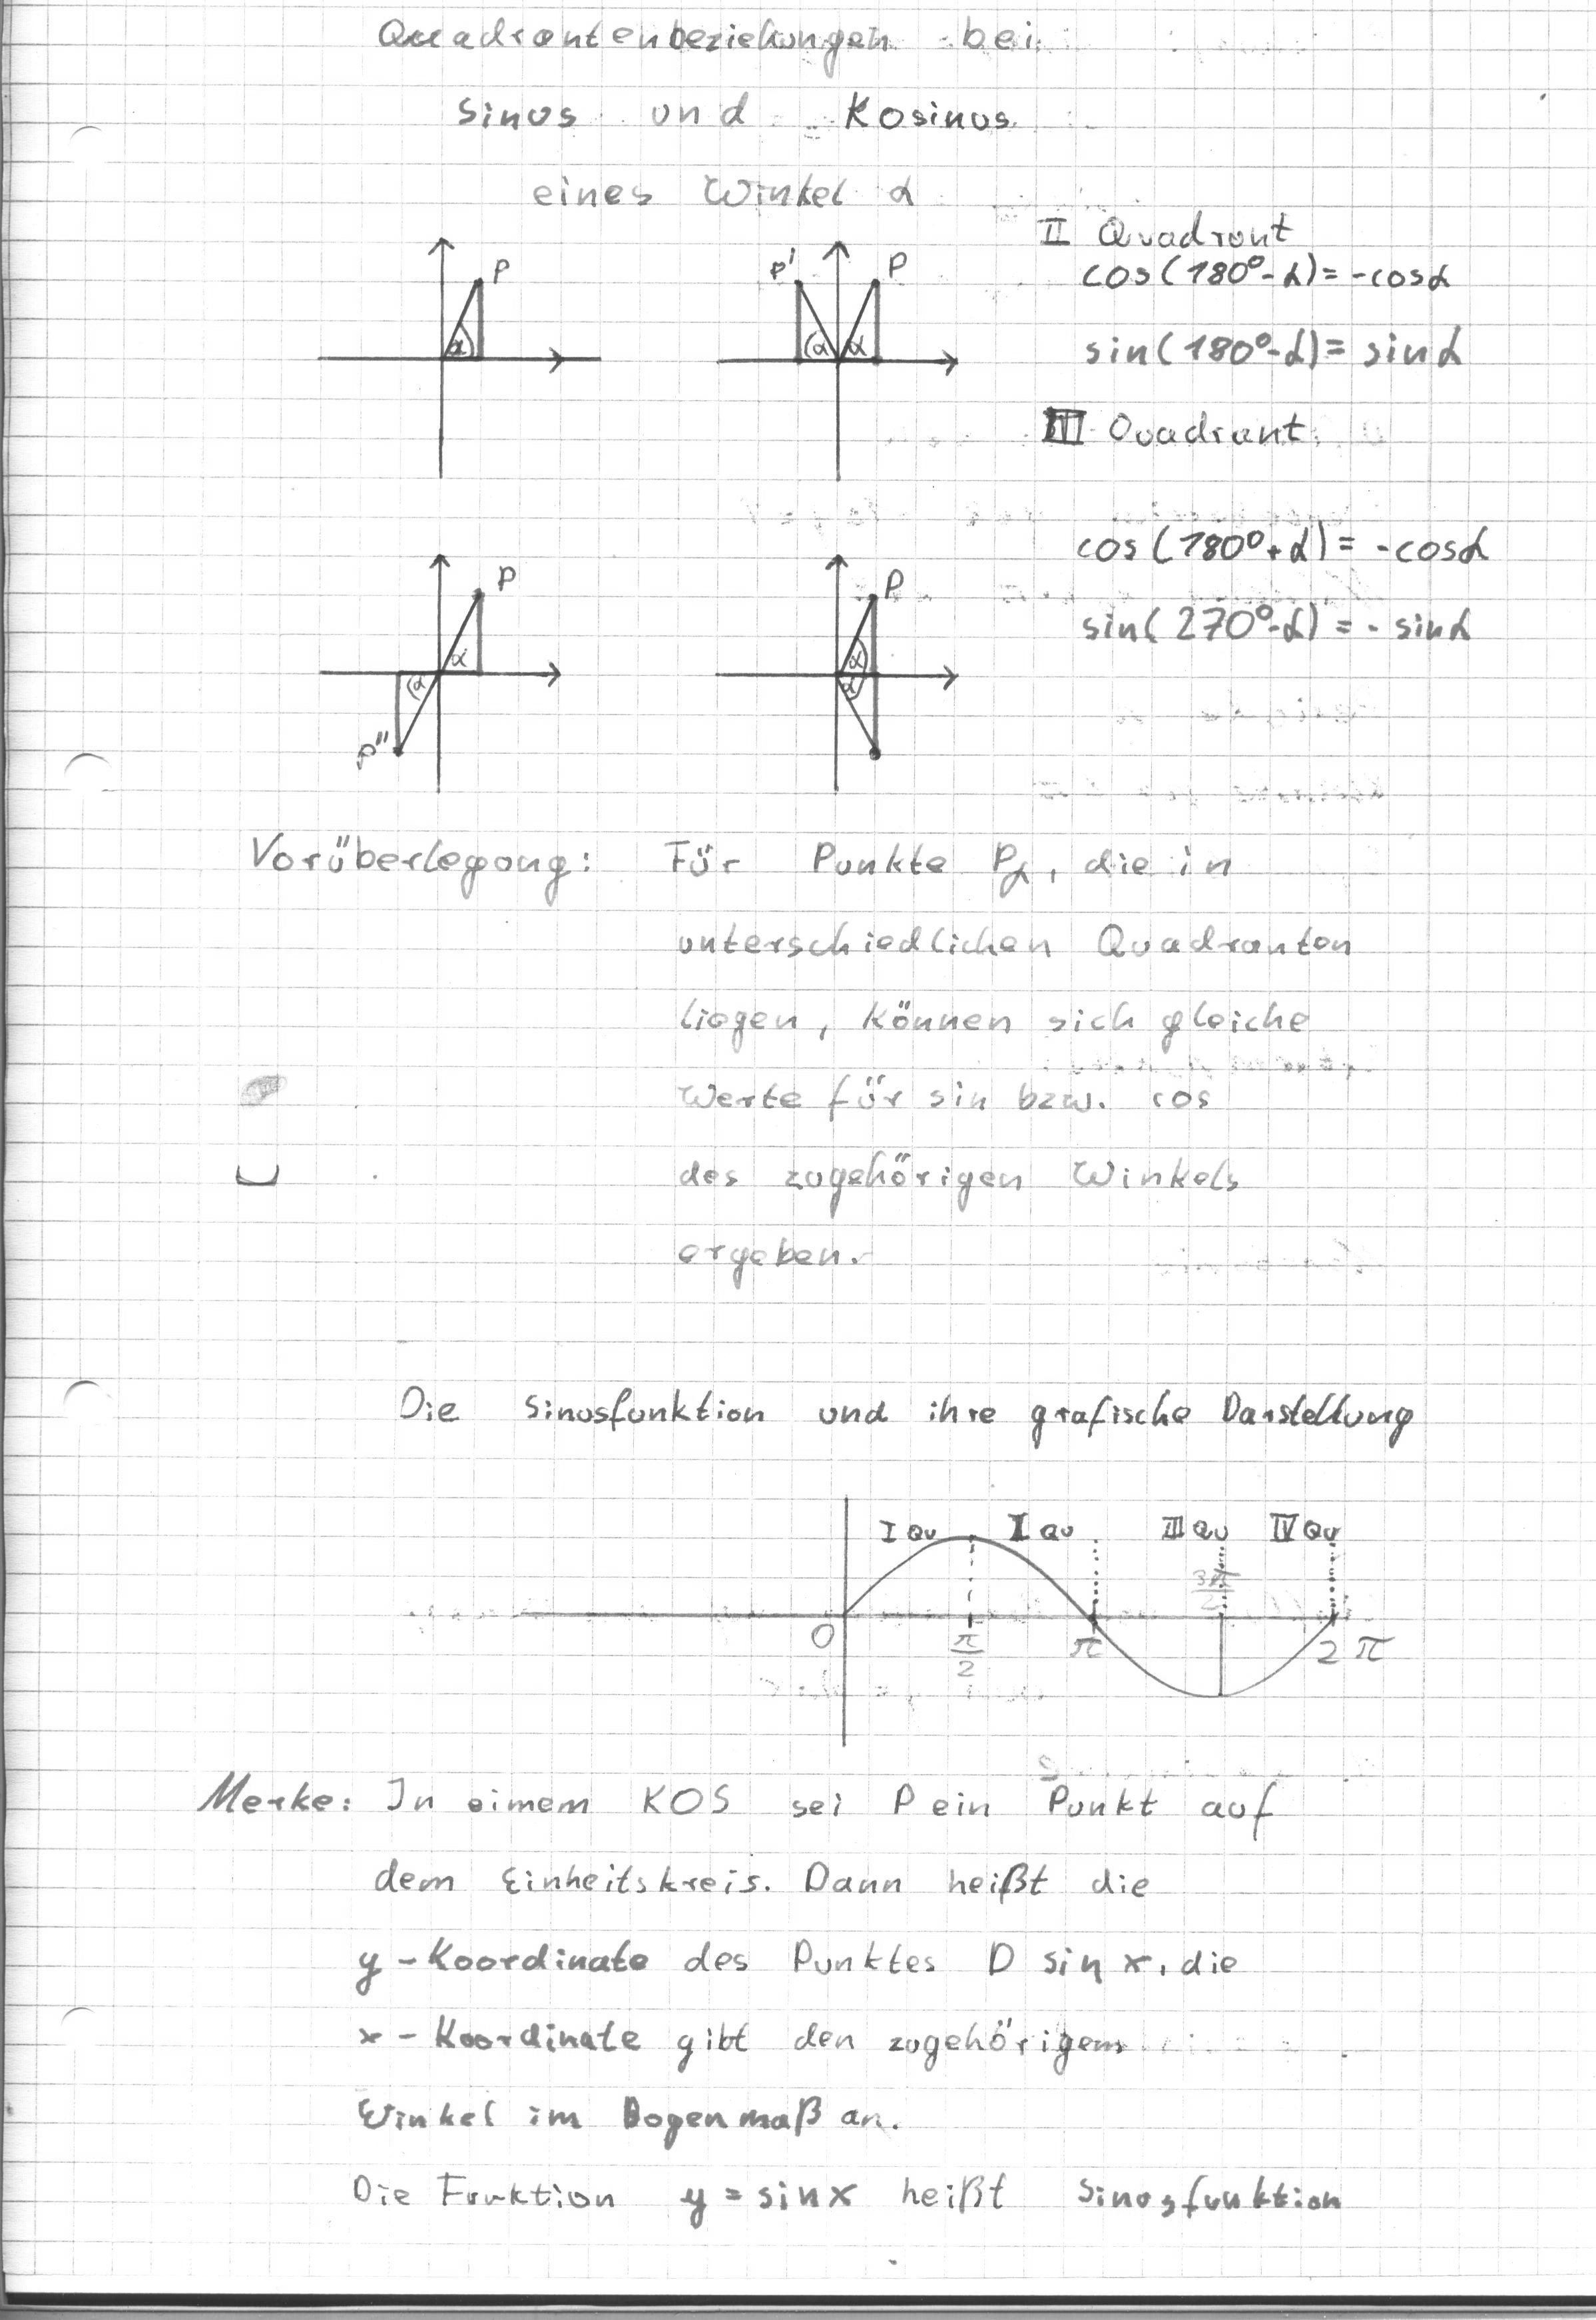 Quadrantenbeziehungen bei
Sinus und Kosinus
eines Winkel α
P
α
P' P
α α
II Quadrant
cos(180°-α)= -cosα
sin(180°-α)= sinα
III Quadrant
P
α
α
P"
P
α
α
cos(180°+α)= -cosα
sin(270°-α)= - sinα
Vorüberlegung: Für Punkte Pα, die in
unterschiedlichen Quadranten
liegen, können sich gleiche
Werte für sin bzw. cos
des zugehörigen Winkels
ergeben.
Die Sinusfunktion und ihre grafische Darstellung
I Qu I Qu III Qu IV Qu
3π/2
0 π/2 π 2π
Merke: In einem KOS sei P ein Punkt auf
dem Einheitskreis. Dann heißt die
y-Koordinate des Punktes D sin x, die
x-Koordinate gibt den zugehörigem
Winkel im Bogenmaß an.
Die Funktion y = sinx heißt Sinusfunktion